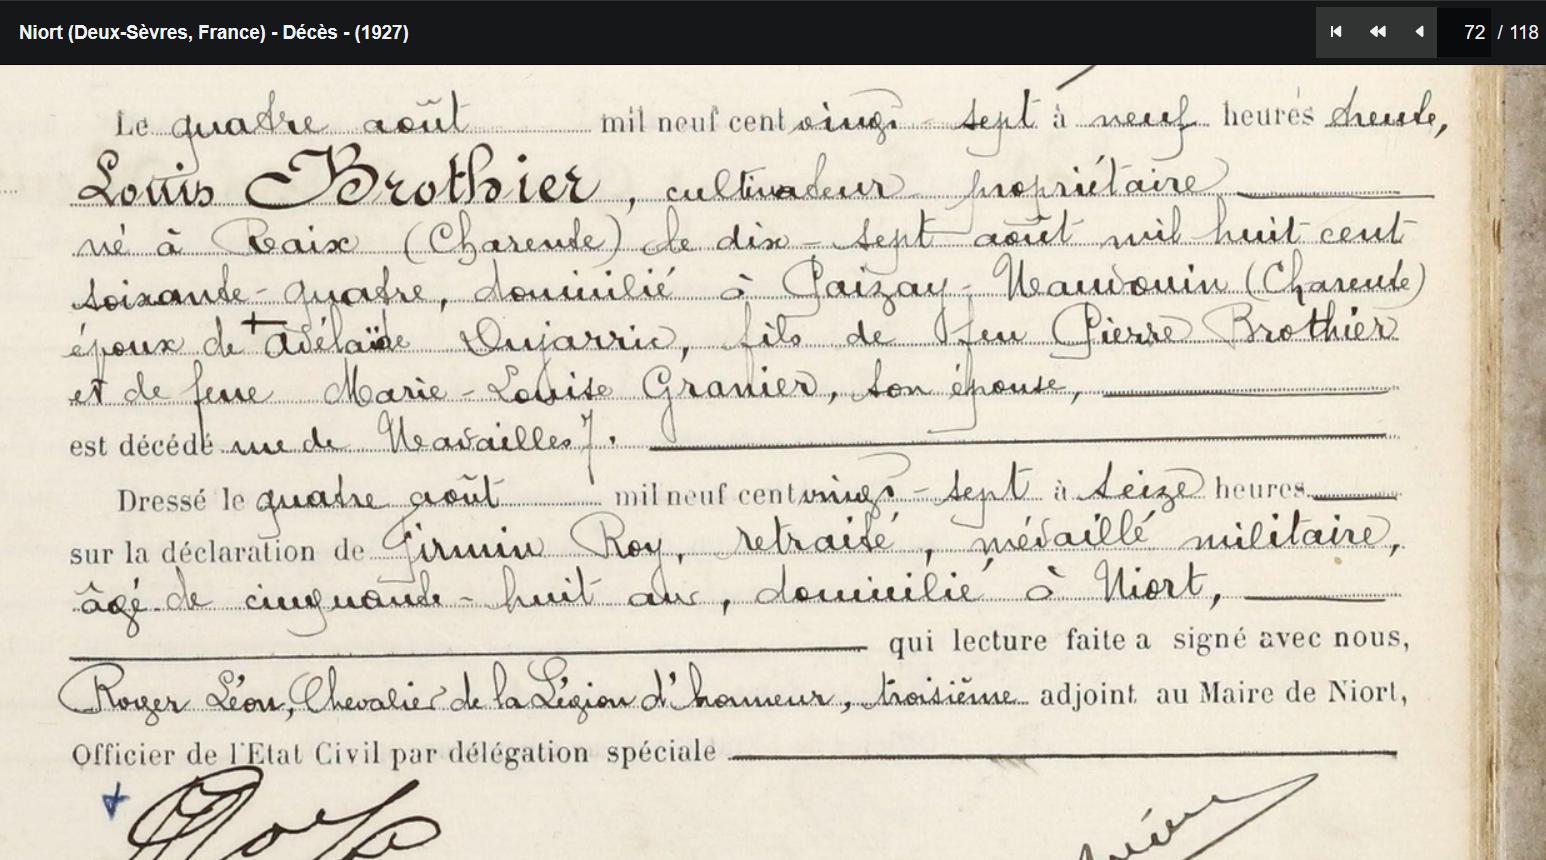 Niort (Deux-Sèvres, France) - Décès - (1927)
72 / 118
Le quatre août mil neuf cent vingt-sept à neuf heures trente,
Louis Brothier, cultivateur propriétaire
né à Raix (Charente) le dix-sept août mil huit cent
soixante-quatre, domicilié à Paizay-Naudouin (Charente)
époux de + Adélaïde Dujarric, fils de feu Pierre Brothier
et de feue Marie-Louise Granier, son épouse,
est décédé rue de Navailles 7.
Dressé le quatre août mil neuf cent vingt-sept à seize heures
sur la déclaration de Firmin Roy, retraité, médaillé militaire,
âgé de cinquante-huit ans, domicilié à Niort,
qui lecture faite a signé avec nous,
Roger Léon, Chevalier de la Légion d'honneur, troisième adjoint au Maire de Niort,
Officier de l'Etat Civil par délégation spéciale